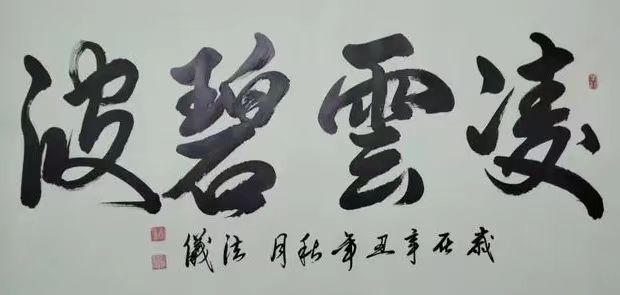 凌雲碧波
歲在辛丑年秋月 法儀